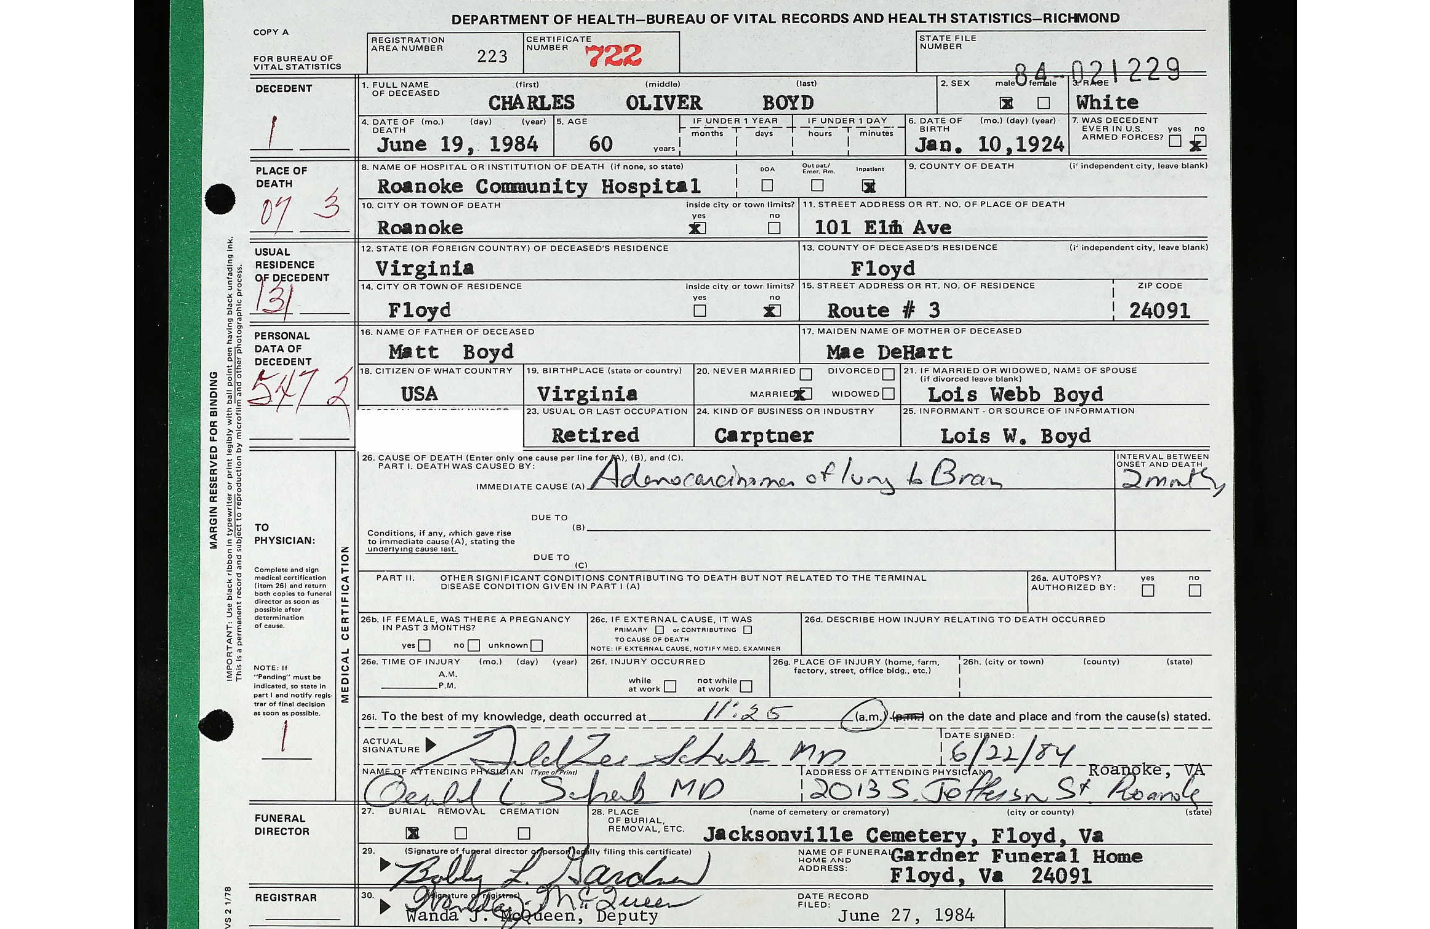 DEPARTMENT OF HEALTH—BUREAU OF VITAL RECORDS AND HEALTH STATISTICS—RICHMOND
COPY A
FOR BUREAU OF VITAL STATISTICS
REGISTRATION AREA NUMBER 223
CERTIFICATE NUMBER 722
STATE FILE NUMBER 84-021229
DECEDENT
1
1. FULL NAME OF DECEASED (first) (middle) (last)
CHARLES OLIVER BOYD
2. SEX male female
x
3. RACE
White
4. DATE OF DEATH (mo.) (day) (year)
June 19, 1984
5. AGE
60 years
IF UNDER 1 YEAR months days
IF UNDER 1 DAY hours minutes
6. DATE OF BIRTH (mo.) (day) (year)
Jan. 10,1924
7. WAS DECEDENT EVER IN U.S. ARMED FORCES? yes no
x
PLACE OF DEATH
07 3
8. NAME OF HOSPITAL OR INSTITUTION OF DEATH (if none, so state)
Roanoke Community Hospital
DOA Out pat./Emer. Rm. Inpatient
x
9. COUNTY OF DEATH (if independent city, leave blank)
10. CITY OR TOWN OF DEATH inside city or town limits? yes no
Roanoke x
11. STREET ADDRESS OR RT. NO. OF PLACE OF DEATH
101 Elm Ave
USUAL RESIDENCE OF DECEDENT
131
12. STATE (OR FOREIGN COUNTRY) OF DECEASED'S RESIDENCE
Virginia
13. COUNTY OF DECEASED'S RESIDENCE (if independent city, leave blank)
Floyd
14. CITY OR TOWN OF RESIDENCE inside city or town limits? yes no
Floyd x
15. STREET ADDRESS OR RT. NO. OF RESIDENCE ZIP CODE
Route # 3 24091
PERSONAL DATA OF DECEDENT
547 2
16. NAME OF FATHER OF DECEASED
Matt Boyd
17. MAIDEN NAME OF MOTHER OF DECEASED
Mae DeHart
18. CITIZEN OF WHAT COUNTRY
USA
19. BIRTHPLACE (state or country)
Virginia
20. NEVER MARRIED DIVORCED
MARRIED x WIDOWED
21. IF MARRIED OR WIDOWED, NAME OF SPOUSE (if divorced leave blank)
Lois Webb Boyd
23. USUAL OR LAST OCCUPATION
Retired
24. KIND OF BUSINESS OR INDUSTRY
Carptner
25. INFORMANT - OR SOURCE OF INFORMATION
Lois W. Boyd
MARGIN RESERVED FOR BINDING
IMPORTANT: Use black ribbon in typewriter or print legibly with ball point pen having black unfading ink.
This is a permanent record and subject to reproduction by microfilm and other photographic process.
MEDICAL CERTIFICATION
TO PHYSICIAN:
Complete and sign medical certification (item 26) and return both copies to funeral director as soon as possible after determination of cause.
NOTE: If "Pending" must be indicated, so state in part I and notify registrar of final decision as soon as possible.
1
26. CAUSE OF DEATH (Enter only one cause per line for (A), (B), and (C).
PART I. DEATH WAS CAUSED BY:
IMMEDIATE CAUSE (A) Adenocarcinoma of lung to Brain
INTERVAL BETWEEN ONSET AND DEATH
2 months
DUE TO (B)
Conditions, if any, which gave rise to immediate cause (A), stating the underlying cause last.
DUE TO (C)
PART II. OTHER SIGNIFICANT CONDITIONS CONTRIBUTING TO DEATH BUT NOT RELATED TO THE TERMINAL DISEASE CONDITION GIVEN IN PART I (A)
26a. AUTOPSY? AUTHORIZED BY: yes no
26b. IF FEMALE, WAS THERE A PREGNANCY IN PAST 3 MONTHS?
yes no unknown
26c. IF EXTERNAL CAUSE, IT WAS
PRIMARY or CONTRIBUTING
TO CAUSE OF DEATH
NOTE: IF EXTERNAL CAUSE, NOTIFY MED. EXAMINER
26d. DESCRIBE HOW INJURY RELATING TO DEATH OCCURRED
26e. TIME OF INJURY (mo.) (day) (year)
A.M.
P.M.
26f. INJURY OCCURRED
while at work not while at work
26g. PLACE OF INJURY (home, farm, factory, street, office bldg., etc.)
26h. (city or town) (county) (state)
26i. To the best of my knowledge, death occurred at 11:25 (a.m.) (p.m.) on the date and place and from the cause(s) stated.
ACTUAL SIGNATURE MD
DATE SIGNED: 6/22/84
NAME OF ATTENDING PHYSICIAN (Type or Print)
MD
ADDRESS OF ATTENDING PHYSICIAN Roanoke, VA
2013 S. Jefferson St Roanoke
FUNERAL DIRECTOR
27. BURIAL REMOVAL CREMATION
x
28. PLACE OF BURIAL, REMOVAL, ETC. (name of cemetery or crematory) (city or county) (state)
Jacksonville Cemetery, Floyd, Va
29. (Signature of funeral director or person legally filing this certificate)
Bobby L. Gardner
NAME OF FUNERAL HOME AND ADDRESS:
Gardner Funeral Home
Floyd, Va 24091
REGISTRAR
30. (Signature of registrar)
Wanda J. McQueen
Wanda J. McQueen, Deputy
DATE RECORD FILED:
June 27, 1984
VS 2 1/78